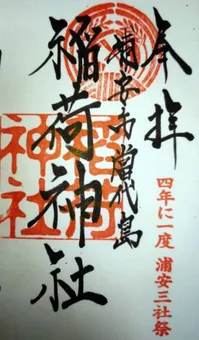 奉拝
四年に一度 浦安三社祭
浦安市當代島
稲荷神社
稲荷
神社